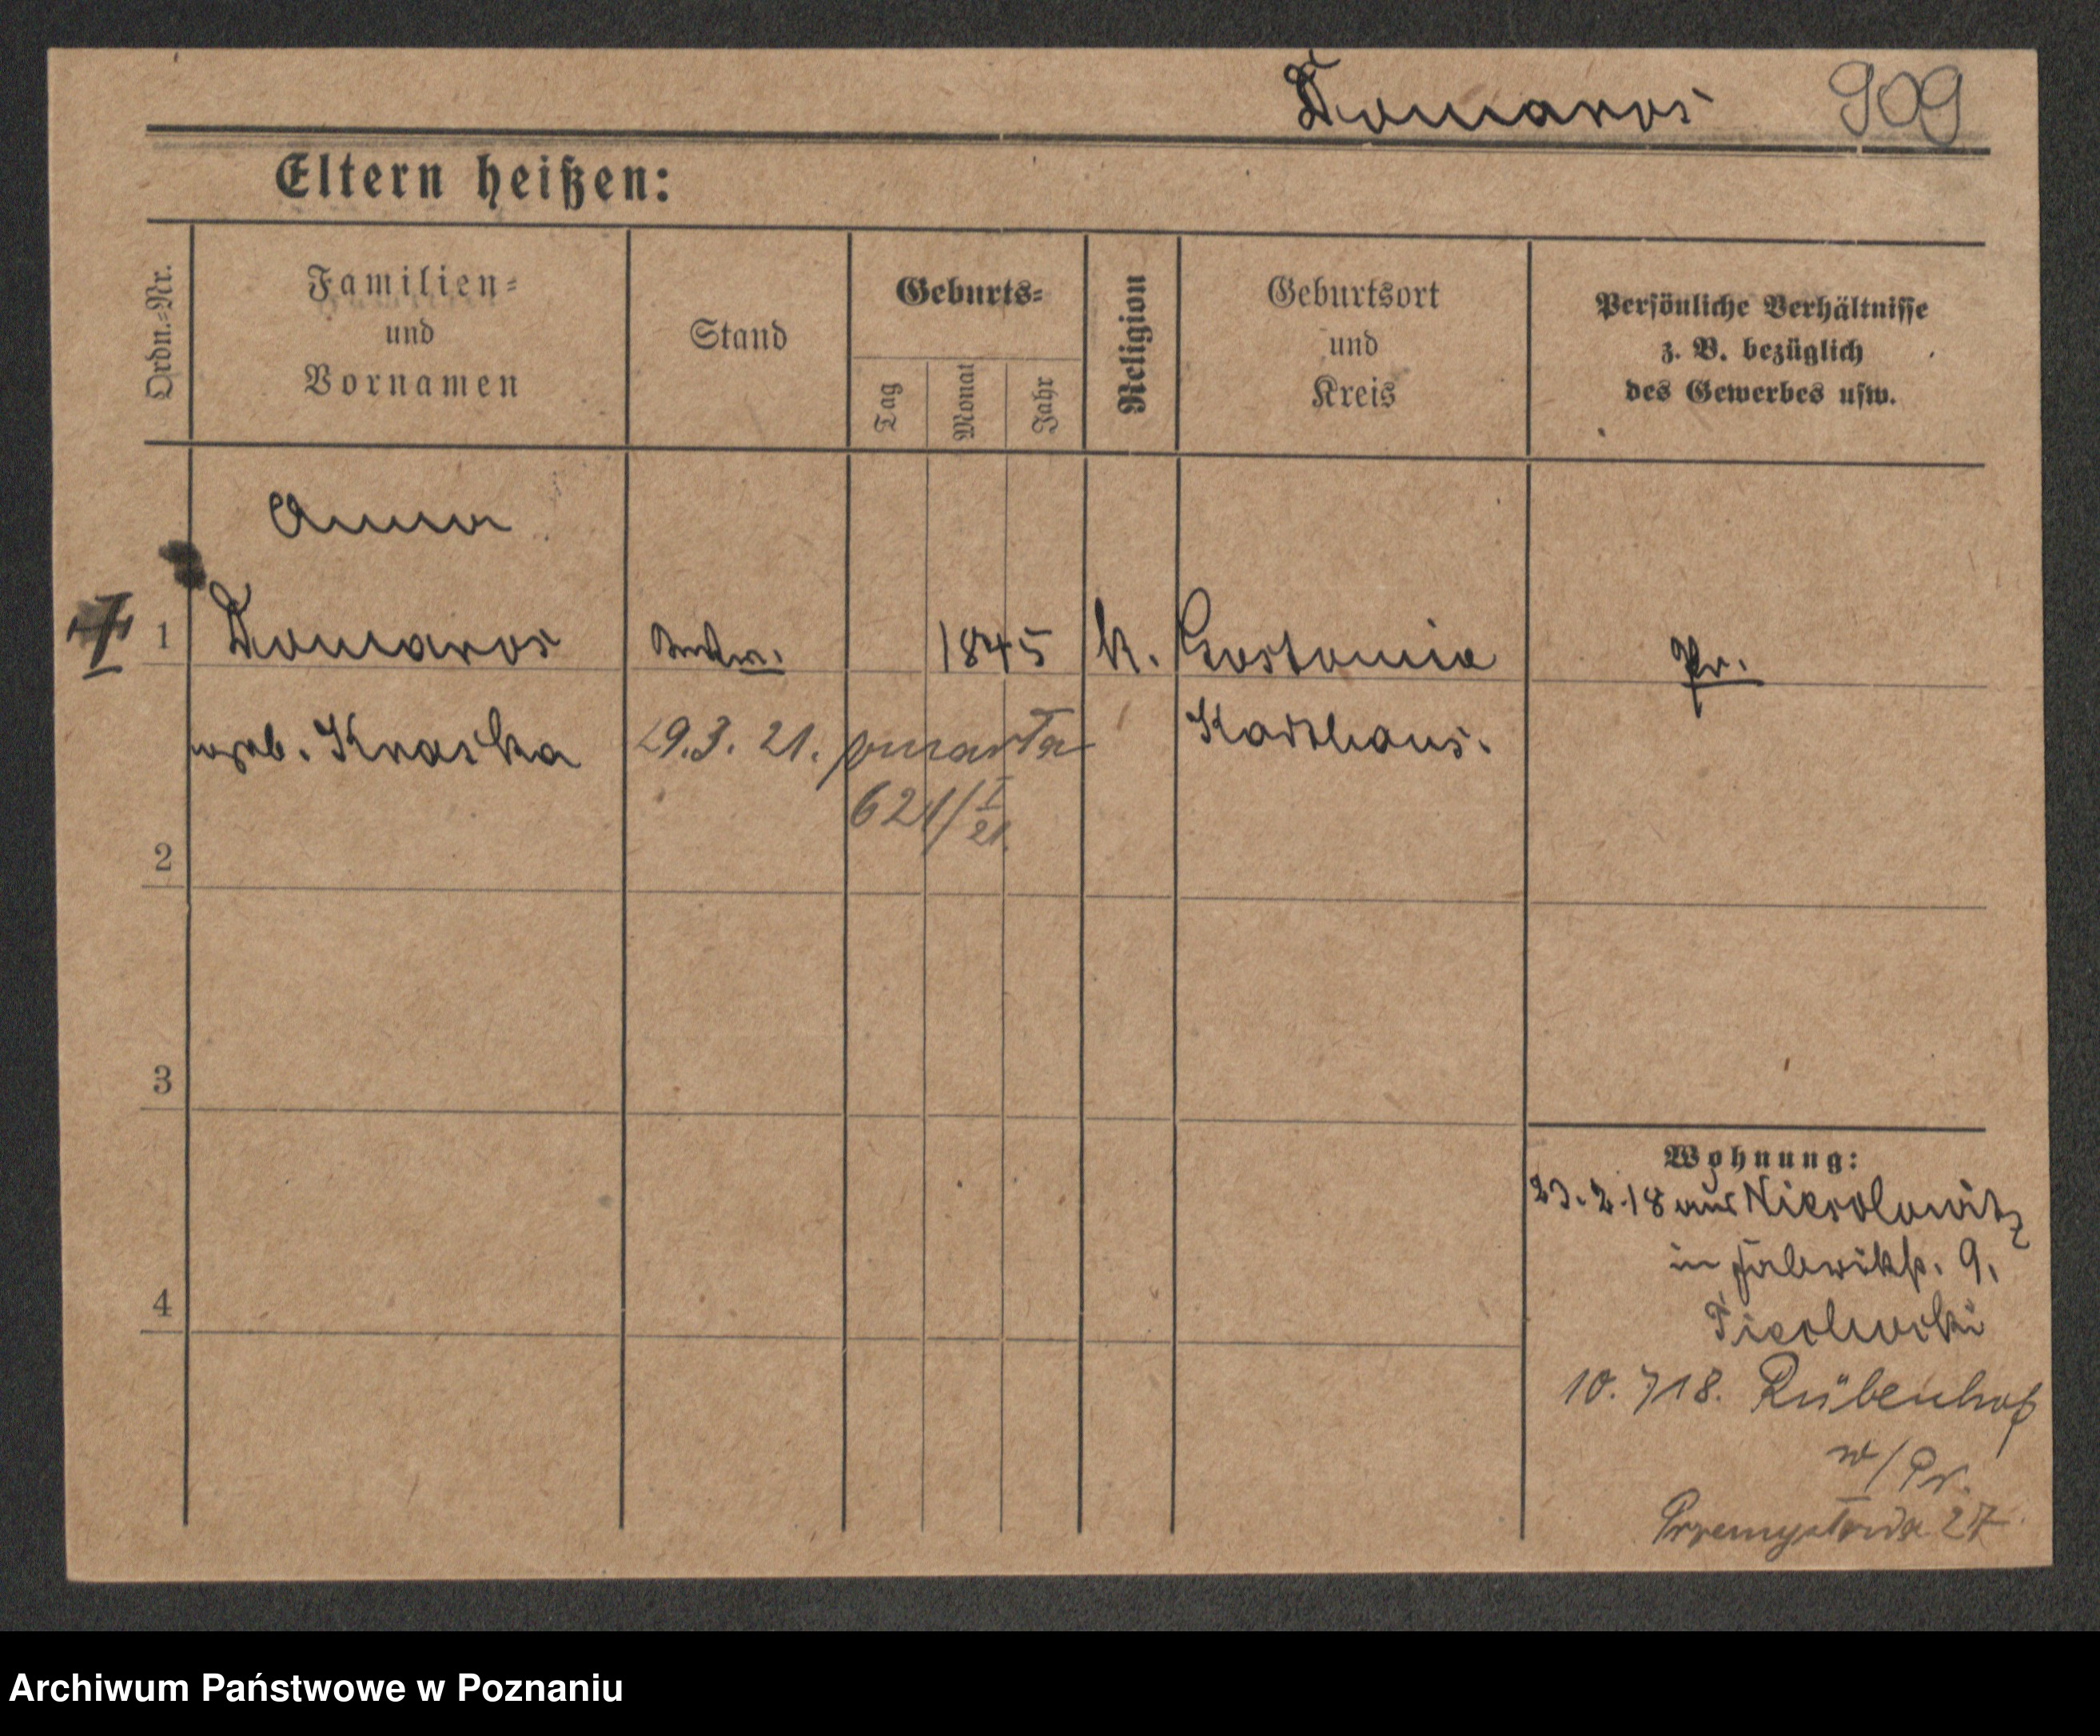 Domaros 909
Eltern heißen:
Ordn.=Nr.
Familien=
und
Vornamen
Stand
Geburts=
Tag
Monat
Jahr
Religion
Geburtsort
und
Kreis
Persönliche Verhältnisse
z. B. bezüglich
des Gewerbes usw.
Anna
1 Domaros 1845 k. Gostomie Pr.
Kraska 29.3.21. zmarła Karthaus.
621/I
21.
2
3
4
Wohnung:
23.2.18 aus
in Fabrikstr. 9.
10.718. Rübenhof
w/Pr.
Przemysłowa 27
Archiwum Państwowe w Poznaniu